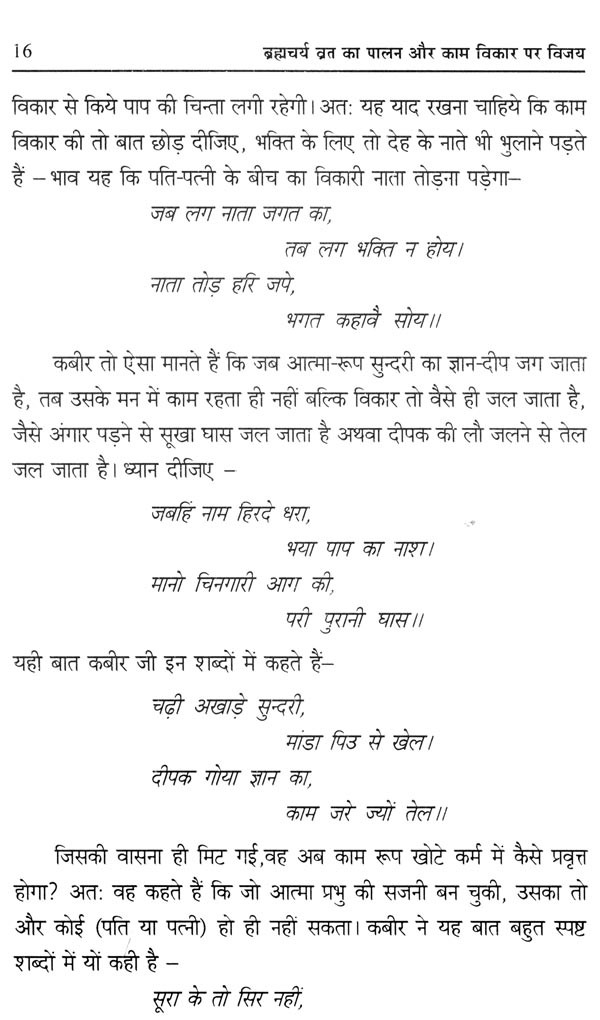 16 ब्रह्मचर्य व्रत का पालन और काम विकार पर विजय
विकार से किये पाप की चिन्ता लगी रहेगी। अतः यह याद रखना चाहिये कि काम
विकार की तो बात छोड़ दीजिए, भक्ति के लिए तो देह के नाते भी भुलाने पड़ते
हैं – भाव यह कि पति-पत्नी के बीच का विकारी नाता तोड़ना पड़ेगा–
जब लग नाता जगत का,
तब लग भक्ति न होय।
नाता तोड़ हरि जपे,
भगत कहावै सोय॥
कबीर तो ऐसा मानते हैं कि जब आत्मा-रूप सुन्दरी का ज्ञान-दीप जग जाता
है, तब उसके मन में काम रहता ही नहीं बल्कि विकार तो वैसे ही जल जाता है,
जैसे अंगार पड़ने से सूखा घास जल जाता है अथवा दीपक की लौ जलने से तेल
जल जाता है। ध्यान दीजिए –
जबहिं नाम हिरदे धरा,
भया पाप का नाश।
मानो चिनगारी आग की,
परी पुरानी घास॥
यही बात कबीर जी इन शब्दों में कहते हैं–
चढ़ी अखाड़े सुन्दरी,
मांडा पिउ से खेल।
दीपक गोया ज्ञान का,
काम जरे ज्यों तेल॥
जिसकी वासना ही मिट गई,वह अब काम रूप खोटे कर्म में कैसे प्रवृत्त
होगा? अतः वह कहते हैं कि जो आत्मा प्रभु की सजनी बन चुकी, उसका तो
और कोई (पति या पत्नी) हो ही नहीं सकता। कबीर ने यह बात बहुत स्पष्ट
शब्दों में यों कही है –
सूरा के तो सिर नहीं,